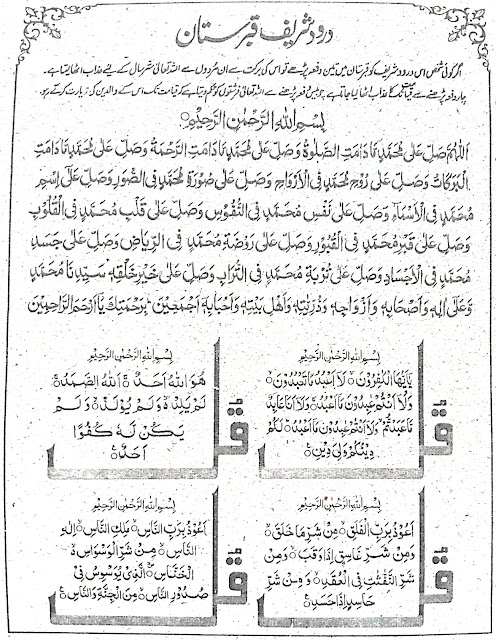 درود شریف قبرستان
اگر کوئی شخص اس درود شریف کو قبرستان میں تین دفعہ پڑھے تو اس کی برکت سے ان مُردوں سے اللہ تعالیٰ ستر سال کے لیے عذاب اٹھا لیتا ہے۔
چار دفعہ پڑھنے سے قیامت تک کا عذاب اٹھا لیا جاتا ہے چوبیس دفعہ پڑھنے سے اللہ تعالیٰ فرشتوں کو حکم دیتا ہے کہ قیامت تک اس کے والدین کی زیارت کرتے رہو۔
بِسْمِ اللهِ الرَّحْمٰنِ الرَّحِيْمِ
اَللّٰهُمَّ صَلِّ عَلٰى مُحَمَّدٍ مَّا دَامَتِ الصَّلٰوةُ وَصَلِّ عَلٰى مُحَمَّدٍ مَّا دَامَتِ الرَّحْمَةُ وَصَلِّ عَلٰى مُحَمَّدٍ مَّا دَامَتِ
الْبَرَكَاتُ وَصَلِّ عَلٰى رُوْحِ مُحَمَّدٍ فِى الْاَرْوَاحِ وَصَلِّ عَلٰى صُوْرَةِ مُحَمَّدٍ فِى الصُّوَرِ وَصَلِّ عَلٰى اِسْمِ
مُحَمَّدٍ فِى الْاَسْمَآءِ وَصَلِّ عَلٰى نَفْسِ مُحَمَّدٍ فِى النُّفُوْسِ وَصَلِّ عَلٰى قَلْبِ مُحَمَّدٍ فِى الْقُلُوْبِ
وَصَلِّ عَلٰى قَبْرِ مُحَمَّدٍ فِى الْقُبُوْرِ وَصَلِّ عَلٰى رَوْضَةِ مُحَمَّدٍ فِى الرِّيَاضِ وَصَلِّ عَلٰى جَسَدِ
مُحَمَّدٍ فِى الْاَجْسَادِ وَصَلِّ عَلٰى تُرْبَةِ مُحَمَّدٍ فِى التُّرَابِ وَصَلِّ عَلٰى خَيْرِ خَلْقِهٖ سَيِّدِنَا مُحَمَّدٍ
وَّعَلٰى اٰلِهٖ وَاَصْحَابِهٖ وَاَزْوَاجِهٖ وَذُرِّيّٰتِهٖ وَاَهْلِ بَيْتِهٖ وَاَحْبَابِهٖ اَجْمَعِيْنَ بِرَحْمَتِكَ يَآ اَرْحَمَ الرَّاحِمِيْنَ
بِسْمِ اللهِ الرَّحْمٰنِ الرَّحِيْمِ
قُلْ
يٰٓاَيُّهَا الْكٰفِرُوْنَ ○ لَآ اَعْبُدُ مَا تَعْبُدُوْنَ ○
وَلَآ اَنْتُمْ عٰبِدُوْنَ مَآ اَعْبُدُ ○ وَلَآ اَنَا عَابِدٌ
مَّا عَبَدْتُّمْ ○ وَلَآ اَنْتُمْ عٰبِدُوْنَ مَآ اَعْبُدُ ○ لَكُمْ
دِيْنُكُمْ وَلِىَ دِيْنِ ○
بِسْمِ اللهِ الرَّحْمٰنِ الرَّحِيْمِ
قُلْ
هُوَ اللهُ اَحَدٌ ○ اَللهُ الصَّمَدُ ○
لَمْ يَلِدْ ○ وَلَمْ يُوْلَدْ ○ وَلَمْ
يَكُنْ لَّهٗ كُفُوًا
اَحَدٌ ○
بِسْمِ اللهِ الرَّحْمٰنِ الرَّحِيْمِ
قُلْ
اَعُوْذُ بِرَبِّ الْفَلَقِ ○ مِنْ شَرِّ مَا خَلَقَ ○
وَمِنْ شَرِّ غَاسِقٍ اِذَا وَقَبَ ○ وَمِنْ
شَرِّ النَّفّٰثٰتِ فِى الْعُقَدِ ○ وَمِنْ شَرِّ
حَاسِدٍ اِذَا حَسَدَ ○
بِسْمِ اللهِ الرَّحْمٰنِ الرَّحِيْمِ
قُلْ
اَعُوْذُ بِرَبِّ النَّاسِ ○ مَلِكِ النَّاسِ ○ اِلٰهِ
النَّاسِ ○ مِنْ شَرِّ الْوَسْوَاسِ ○
الْخَنَّاسِ ○ الَّذِىْ يُوَسْوِسُ فِىْ
صُدُوْرِ النَّاسِ ○ مِنَ الْجِنَّةِ وَالنَّاسِ ○